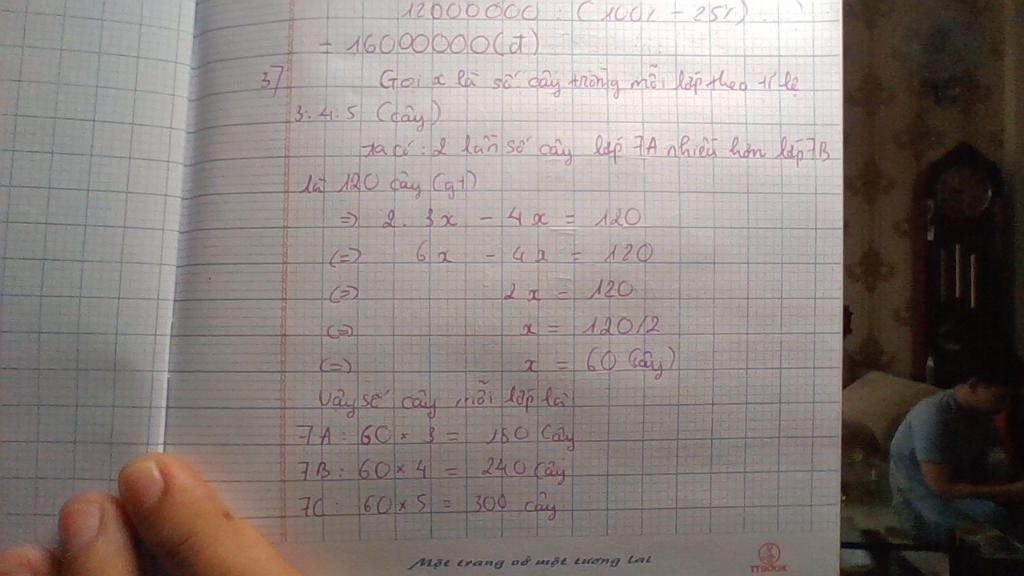 12000000 : (100% - 25%)
= 16000000(đ)
3) Gọi x là số cây trồng mỗi lớp theo tỉ lệ
3:4:5 (cây)
ta có: 2 lần số cây lớp 7A nhiều hơn lớp 7B
là 120 cây (gt)
=> 2. 3x - 4x = 120
(=) 6x - 4x = 120
(=) 2x = 120
(=) x = 120/2
(=) x = 60 (cây)
Vậy số cây mỗi lớp là
7A: 60 × 3 = 180 cây
7B: 60 × 4 = 240 cây
7C: 60 × 5 = 300 cây
Một trang vở một tương lai
TTBOOK